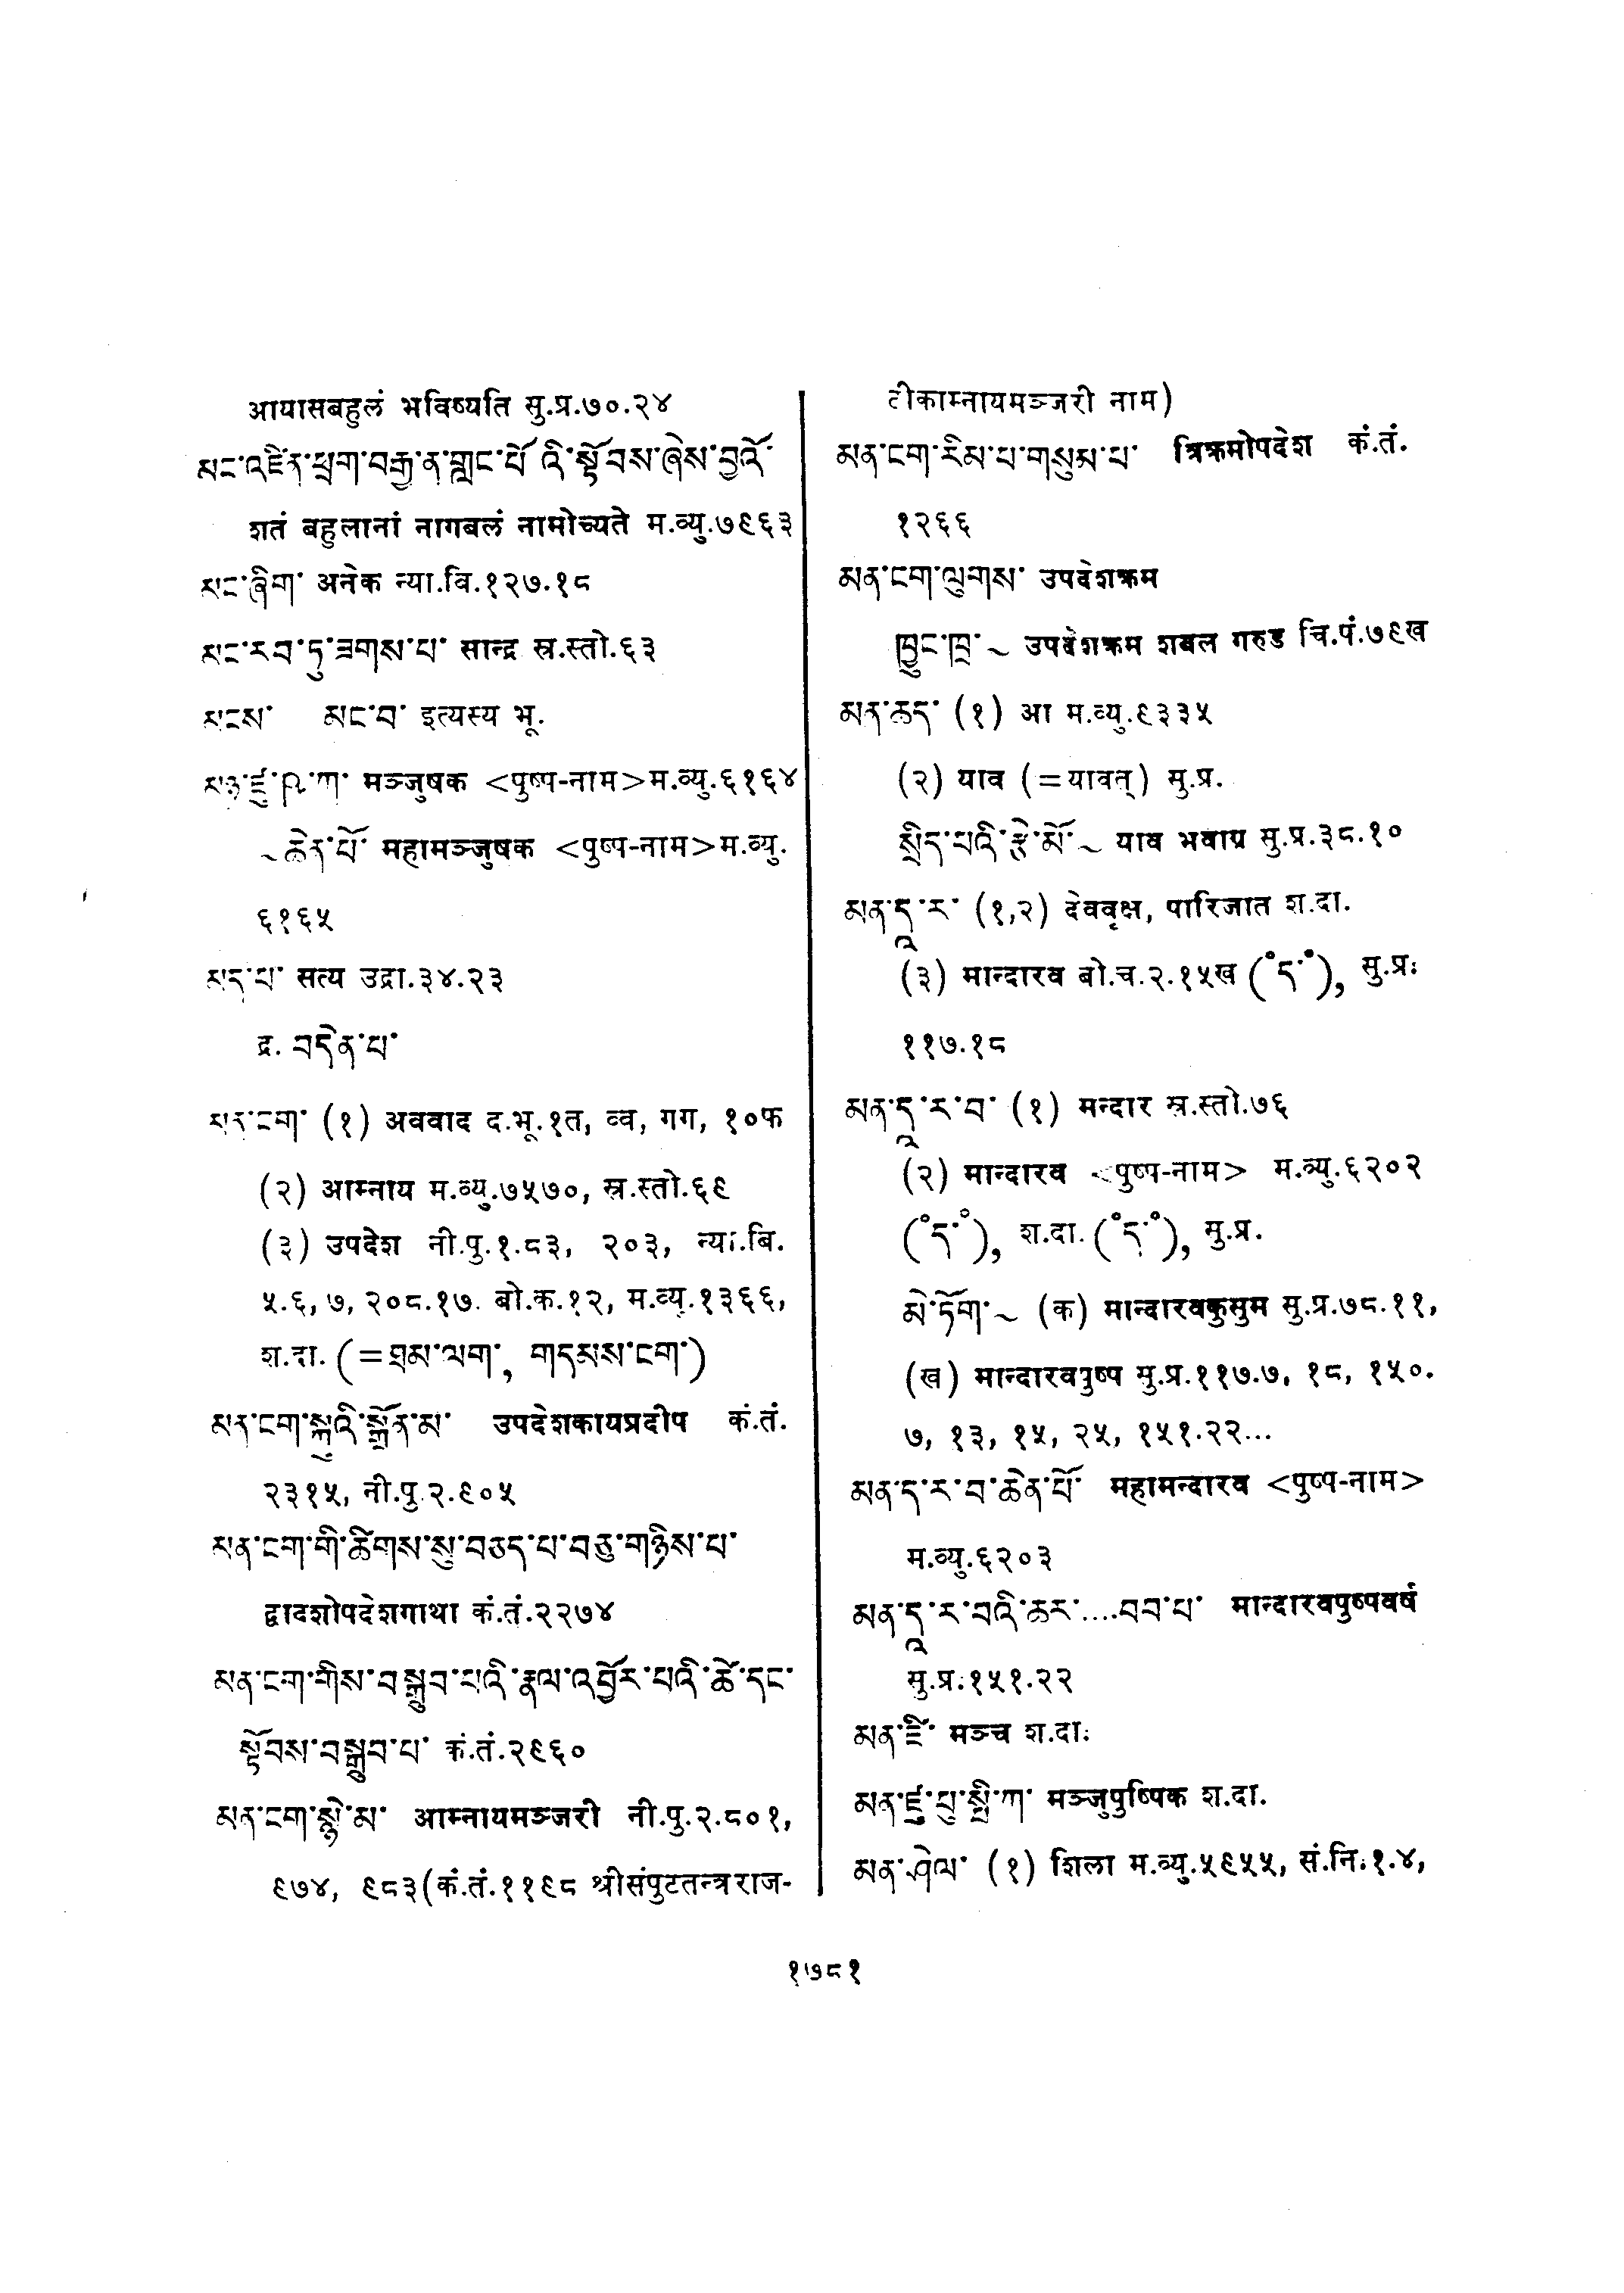 आयासबहुलं भविष्यति सु.प्र.७०.२४
མང་འཛིན་ཕྲག་བརྒྱ་ན་གླང་པོ་འི་སྟོབས་ཞེས་བྱའོ་
शतं बहुलानां नागबलं नामोच्यते म.व्यु.७९६३
མང་ཞིག་ अनेक न्या.वि.१२७.१८
མང་རབ་ཏུ་ཟགས་པ་ सान्द्र स्र.स्तो.६३
མངས་ མང་བ་ इत्यस्य भू.
མཉ་ཛུ་ཥ་ཀ་ मञ्जुषक <पुष्प-नाम>म.व्यु.६१६४
~ཆེན་པོ་ महामञ्जुषक <पुष्प-नाम>म.व्यु.
६१६५
མད་པ་ सत्य उद्रा.३४.२३
द्र. བདེན་པ་
མན་ངག་ (१) अववाद द.भू.१त, व्व, गग, १०फ
(२) आम्नाय म.व्यु.७५७०, स्र.स्तो.६९
(३) उपदेश नी.पु.१.८३, २०३, न्या.बि.
५.६, ७, २०८.१७. बो.क.१२, म.व्यु.१३६६,
श.दा. (=ཐམ་ལག་, གདམས་ངག་)
མན་ངག་སྐུའི་སྒྲོན་མ་ उपदेशकायप्रदीप कं.तं.
२३१५, नी.पु.२.९०५
མན་ངག་གི་ཚིགས་སུ་བཅད་པ་བཅུ་གཉིས་པ་
द्वादशोपदेशगाथा कं.तं.२२७४
མན་ངག་གིས་བསྒྲུབ་པའི་རྣལ་འབྱོར་པའི་ཚེ་དང་
སྟོབས་བསྒྲུབ་པ་ कं.तं.२९६०
མན་ངག་སྙེ་མ་ आम्नायमञ्जरी नी.पु.२.८०१,
९७४, ९८३(कं.तं.११९८ श्रीसंपुटतन्त्रराज-
टीकाम्नायमञ्जरी नाम)
མན་ངག་རིམ་པ་གསུམ་པ་ त्रिक्रमोपदेश कं.तं.
१२६६
མན་ངག་ལུགས་ उपदेशक्रम
ཁྱུང་ཁྲ་~ उपदेशक्रम शबल गरुड चि.पं.७९ख
མན་ཆད་ (१) आ म.व्यु.९३३५
(२) याव (=यावत्) सु.प्र.
སྲིད་པའི་རྩེ་མོ་~ याव भवाग्र सु.प्र.३८.१०
མན་དཱ་ར་ (१,२) देववृक्ष, पारिजात श.दा.
(३) मान्दारव बो.च.२.१५ख (°ད་°), सु.प्र.
११७.१८
མན་དཱ་ར་བ་ (१) मन्दार स्र.स्तो.७६
(२) मान्दारव <पुष्प-नाम> म.व्यु.६२०२
(°ད་°), श.दा. (°ད་°), सु.प्र.
མེ་ཏོག་~ (क) मान्दारवकुसुम सु.प्र.७८.११,
(ख) मान्दारवपुष्प सु.प्र.११७.७, १८, १५०.
७, १३, १५, २५, १५१.२२...
མན་ད་ར་བ་ཆེན་པོ་ महामन्दारव <पुष्प-नाम>
म.व्यु.६२०३
མན་དཱ་ར་བའི་ཆར་....བབ་པ་ मान्दारवपुष्पवर्ष
सु.प्र.१५१.२२
མན་ཛི་ मञ्च श.दा.
མན་ཛུ་པུ་སྤི་ཀ་ मञ्जुपुष्पिक श.दा.
མན་ཤེལ་ (१) शिला म.व्यु.५९५५, सं.नि.१.४,
१७८१